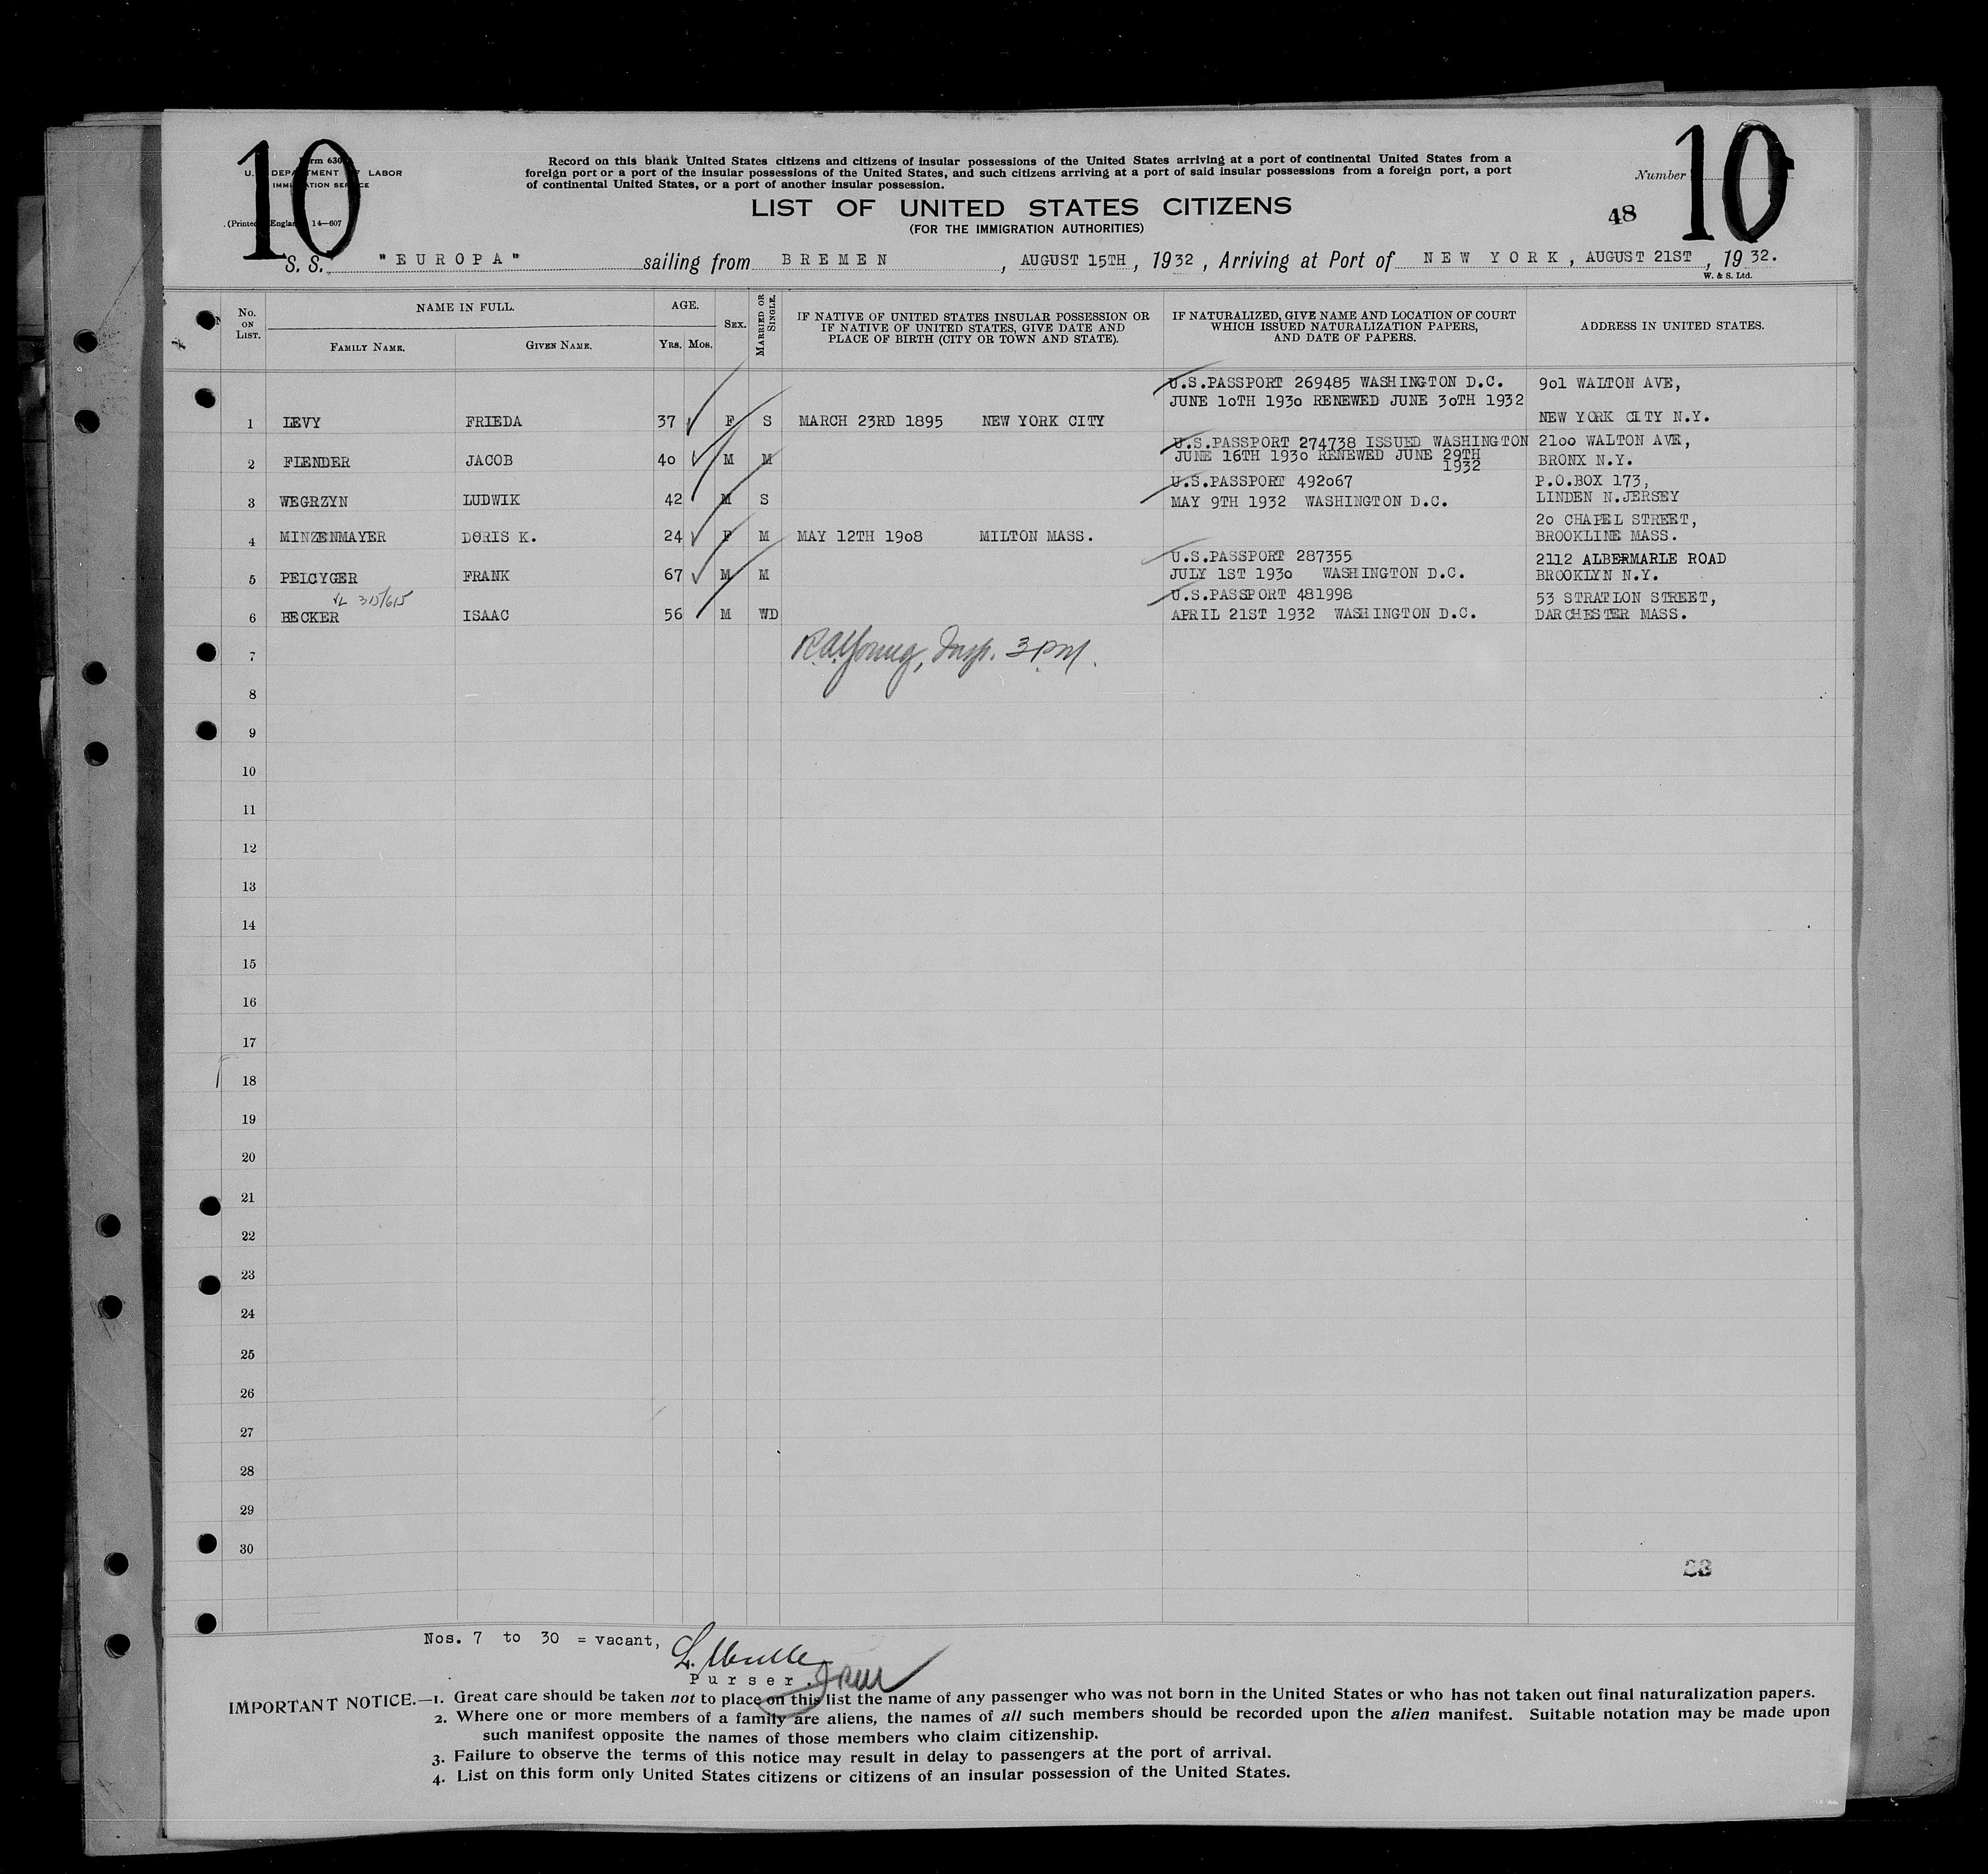 10
Form 630
U. S. DEPARTMENT OF LABOR
IMMIGRATION SERVICE
(Printed England 14—607
Record on this blank United States citizens and citizens of insular possessions of the United States arriving at a port of continental United States from a
foreign port or a port of the insular possessions of the United States, and such citizens arriving at a port of said insular possessions from a foreign port, a port
of continental United States, or a port of another insular possession.
LIST OF UNITED STATES CITIZENS
(FOR THE IMMIGRATION AUTHORITIES)
Number 10
48
S. S. "EUROPA" sailing from BREMEN, AUGUST 15TH, 1932, Arriving at Port of NEW YORK, AUGUST 21ST, 1932.
W. & S. Ltd.
No. ON LIST. NAME IN FULL. FAMILY NAME. GIVEN NAME. AGE. YRS. MOS. SEX. MARRIED OR SINGLE.
IF NATIVE OF UNITED STATES INSULAR POSSESSION OR
IF NATIVE OF UNITED STATES, GIVE DATE AND
PLACE OF BIRTH (CITY OR TOWN AND STATE).
IF NATURALIZED, GIVE NAME AND LOCATION OF COURT
WHICH ISSUED NATURALIZATION PAPERS,
AND DATE OF PAPERS.
ADDRESS IN UNITED STATES.
U.S.PASSPORT 269485 WASHINGTON D.C. 901 WALTON AVE,
JUNE 10TH 1930 RENEWED JUNE 30TH 1932
1 LEVY FRIEDA 37 F S MARCH 23RD 1895 NEW YORK CITY NEW YORK CITY N.Y.
U.S.PASSPORT 274738 ISSUED WASHINGTON 2100 WALTON AVE,
2 FLENDER JACOB 40 M M JUNE 16TH 1930 RENEWED JUNE 29TH 1932 BRONX N.Y.
U.S.PASSPORT 492067 P.O.BOX 173,
3 WEGRZYN LUDWIK 42 M S MAY 9TH 1932 WASHINGTON D.C. LINDEN N.JERSEY
20 CHAPEL STREET,
4 MINZENMAYER DORIS K. 24 F M MAY 12TH 1908 MILTON MASS. BROOKLINE MASS.
U.S.PASSPORT 287355 2112 ALBERMARLE ROAD
5 PEICYGER FRANK 67 M M JULY 1ST 1930 WASHINGTON D.C. BROOKLYN N.Y.
VL 315/615 U.S.PASSPORT 481998 53 STRATLON STREET,
6 BECKER ISAAC 56 M WD APRIL 21ST 1932 WASHINGTON D.C. DARCHESTER MASS.
7 R.A. Young, Insp. 3 PM.
8
9
10
11
12
13
14
15
16
17
18
19
20
21
22
23
24
25
26
27
28
29
30
Nos. 7 to 30 = vacant,
Purser.
IMPORTANT NOTICE.—1. Great care should be taken not to place on this list the name of any passenger who was not born in the United States or who has not taken out final naturalization papers.
2. Where one or more members of a family are aliens, the names of all such members should be recorded upon the alien manifest. Suitable notation may be made upon
such manifest opposite the names of those members who claim citizenship.
3. Failure to observe the terms of this notice may result in delay to passengers at the port of arrival.
4. List on this form only United States citizens or citizens of an insular possession of the United States.